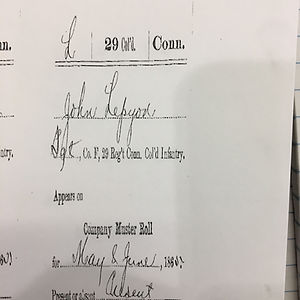 nn. L 29 Col'd. Conn.
John Lepyon
ntry. Sgt, Co. F, 29 Reg't Conn. Col'd Infantry.
Appears on
Company Muster Roll
for May & June, 186
Present or absent Absent